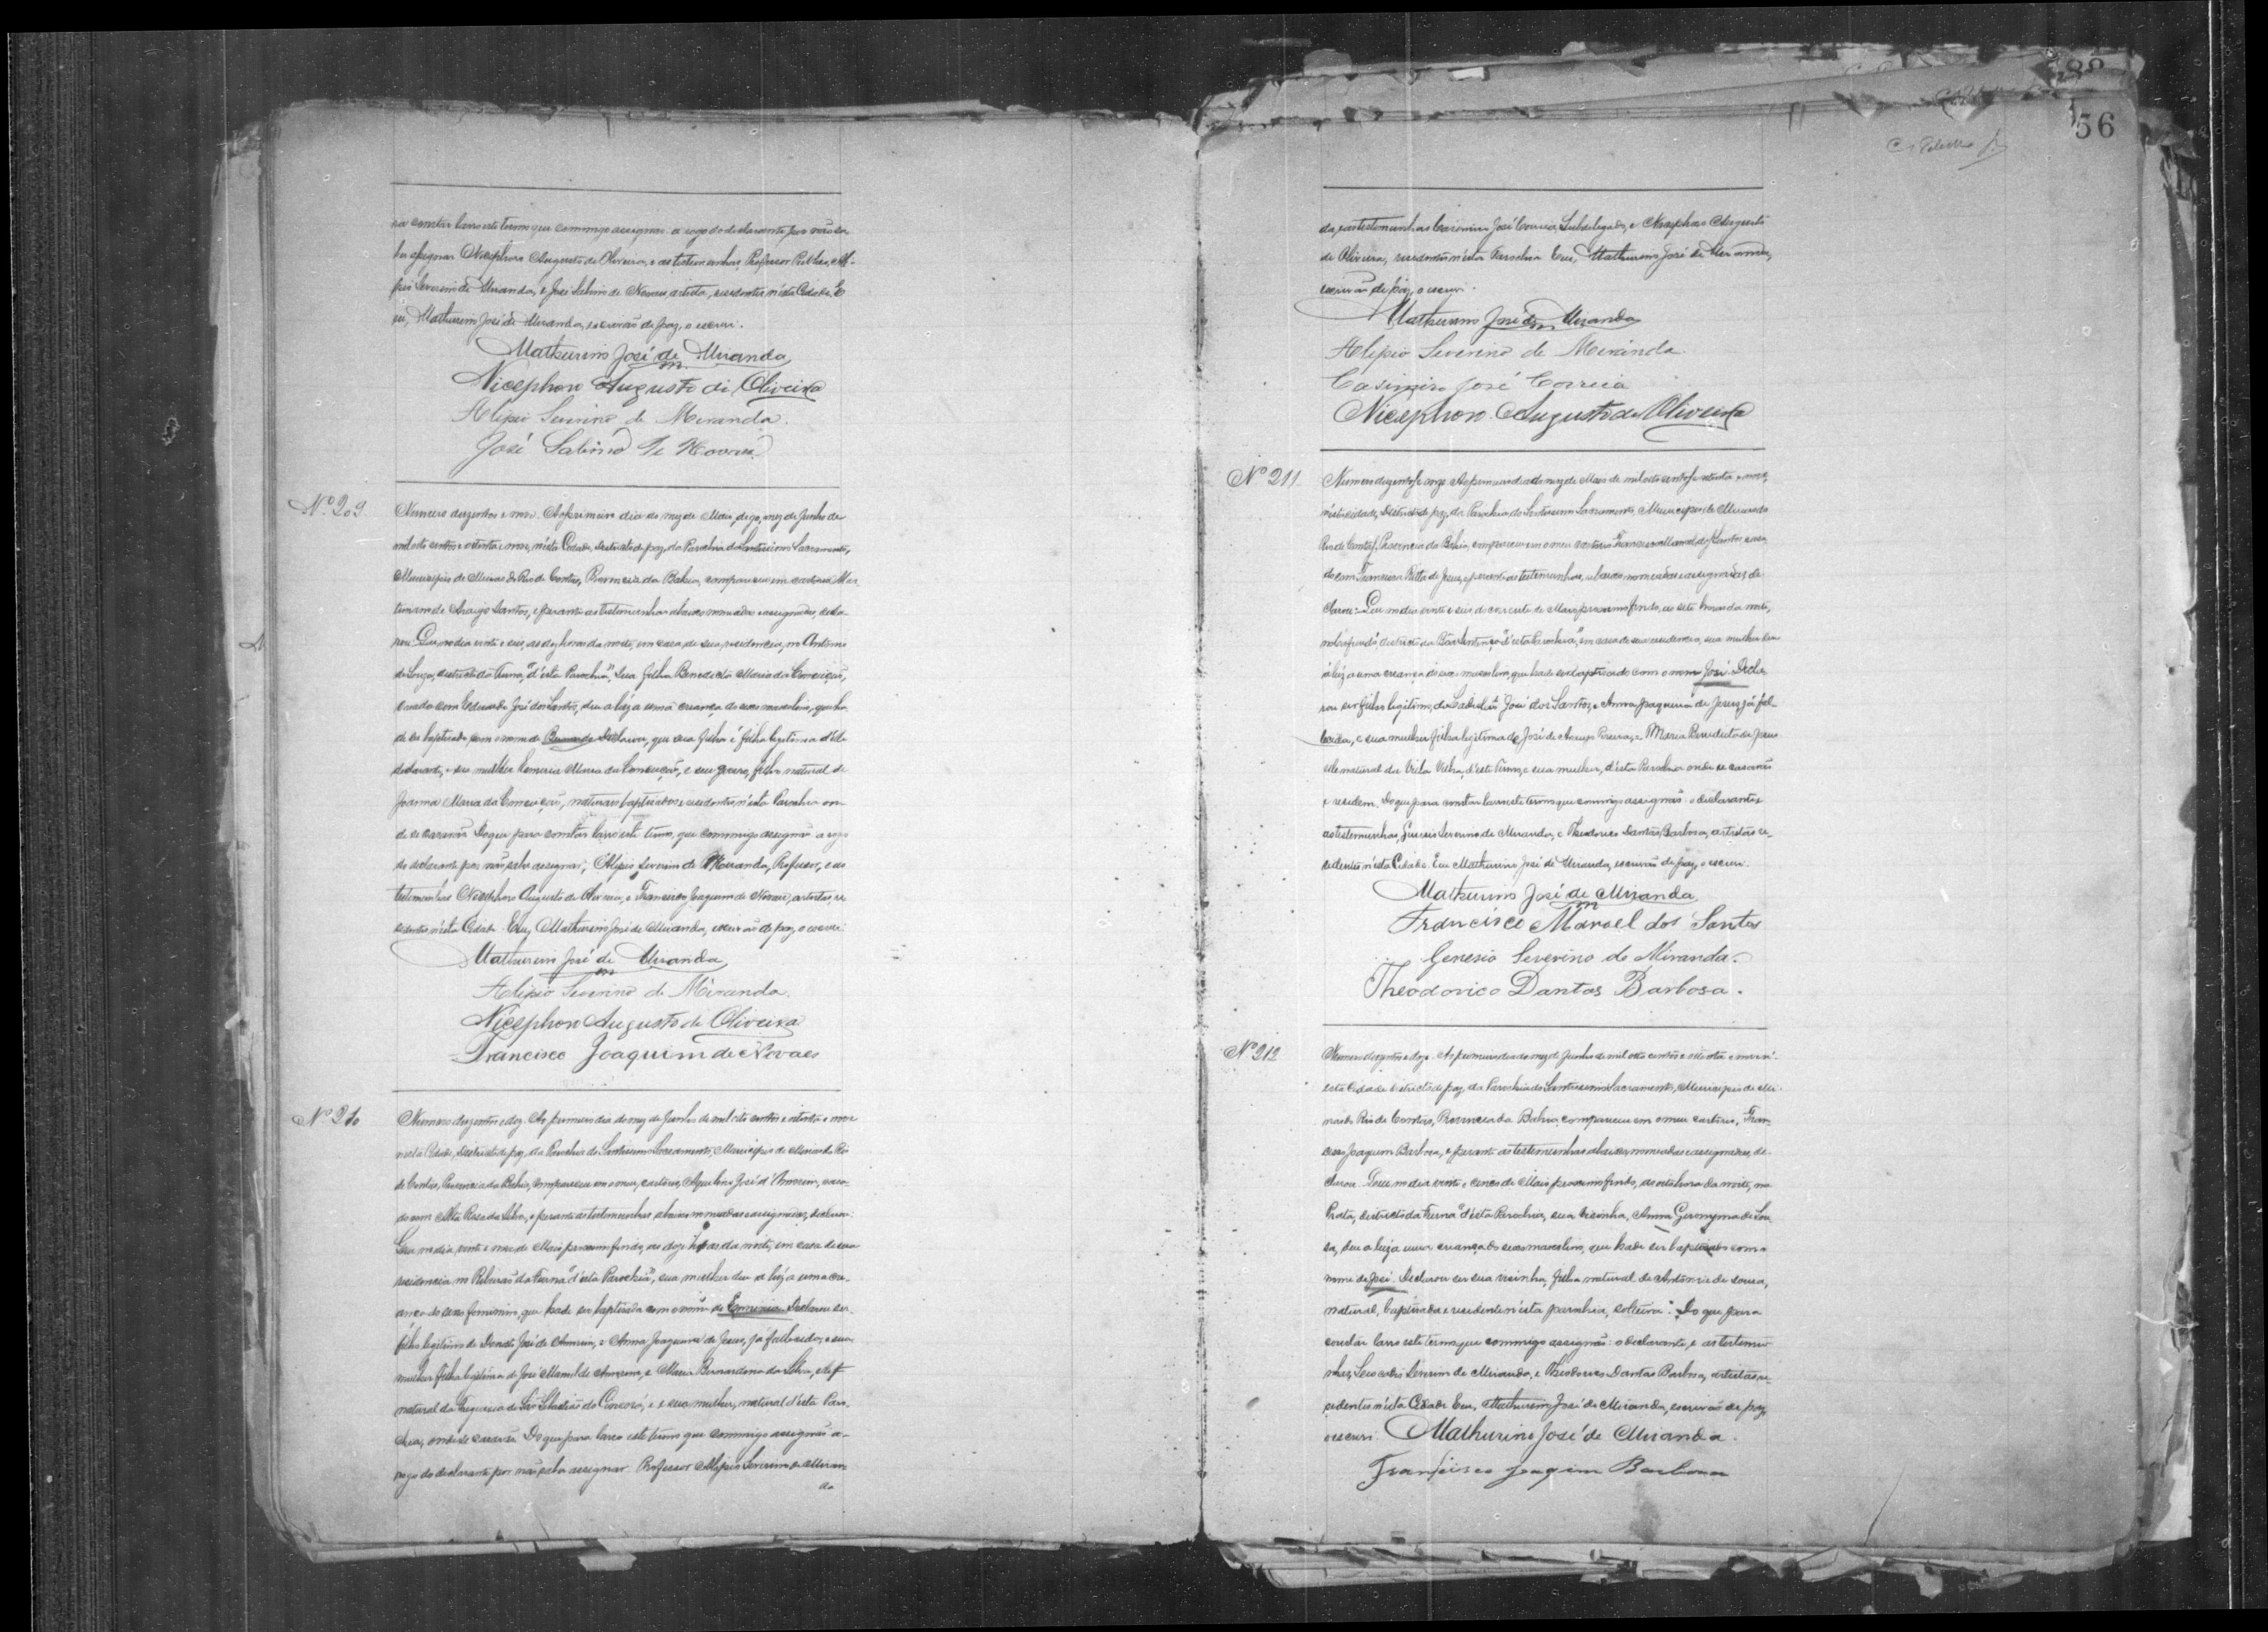 ra constar lavro este termo que commigo assignão a rogo do declarante por não sa-
ber assignar Nicephoro Augusto de Oliveira, e as testemunhas, Professor Publico, Ali-
pio Severino de Miranda, e José Sabino de Novaes, artista, residentes n'esta Cidade. E
eu, Mathurino José de Miranda, escrivão de paz, o escrevi.
Mathurino José de Miranda
Nicephoro Augusto de Oliveira
Alipio Severino de Miranda.
José Sabino de Novaes
Nº 209.
Numero duzentos e nove. Ao primeiro dia do mez de Maio, digo, mez de Junho de
mil oito centos e oitenta e nove, n'esta Cidade, Districto de paz, da Parochia do Santissimo Sacramento,
Municipio de Minas do Rio de Contas, Provincia da Bahia, compareceu em cartorio Mar
de Araujo Santos, e perante as testemunhas abaixo nomeadas e assignadas, decla-
rou: Que, no dia vinte e seis, as dez horas da noite, em casa de sua residencia, no Antonio
de Souza, districto da Furna, d'esta Parochia, sua filha Benedicta Maria da Conceição,
casada com Eduardo José dos Santos, deu a luz a uma criança do sexo masculino, que ha
de ser baptisado com o nome de Bernardo. Declarou, que sua filha é filha legitima d'elle
declarante, e sua mulher Maria da Conceição, e seu genro, filho natural de
Joanna Maria da Conceição, naturaes baptisados e residentes n'esta Parochia on-
de se casarão. Do que para constar lavro este termo, que commigo assignão a rogo
do declarante por não saber assignar, Alipio Severino de Miranda, Professor, e as
testemunhas Nicephoro Augusto de Oliveira, e Francisco Joaquim de Novaes, artistas, re-
sidentes n'esta Cidade. Eu, Mathurino José de Miranda, escrivão de paz, o escrevi.
Mathurino José de Miranda
Alipio Severino de Miranda.
Nicephoro Augusto de Oliveira
Francisco Joaquim de Novaes
Nº 210
Numero duzentos e dez. Ao primeiro dia do mez de Junho de mil oito centos e oitenta e nove
n'esta Cidade, Districto de paz, da Parochia do Santissimo Sacramento, Municipio de Minas do Rio
de Contas, Provincia da Bahia, compareceu em o meu cartorio, Aquilino José d'Amorim, casa-
do com Rosa da Silva, e perante as testemunhas abaixo nomeadas e assignadas, declarou:
Que no dia vinte e nove de Maio proximo findo, as doze horas da noite, em casa de sua
residencia no Ribeirão da Furna d'esta Parochia, sua mulher deu a luz a uma cri-
ança do sexo feminino, que hade ser baptisada com o nome de. Declarou ser
filho legitimo de Donato José de Amorim, e Anna Joaquina de Jesus, já fallecida, e sua
mulher filha legitima de José Manoel de Amorim, e Maria Bernardina da Silva, elle
natural da Freguesia de São Sebastião do Sincorá, e sua mulher, natural d'esta Paro-
chia, onde se casarão. Do que para lavro este termo que commigo assignão a-
rogo do declarante por não saber assignar Professor Alipio Severino de Miran-
da
56
da, e as testemunhas Casimiro José Correia, Subdelegado, e Nicephoro Augusto
de Oliveira, residentes n'esta Parochia. Eu, Mathurino José de Miranda,
escrivão de paz, o escrevi.
Mathurino José de Miranda
Alipio Severino de Miranda.
Casimiro José Correia
Nicephoro Augusto de Oliveira
Nº 211
Numero duzentos e onze. Ao primeiro dia do mez de Maio de mil oito centos e oitenta e nove,
n'esta cidade, Districto de paz, da Parochia do Santissimo Sacramento, Municipio de Minas do
Rio de Contas, Provincia da Bahia, compareceu em o meu cartorio Francisco Manoel dos Santos casa
do com Francisca Ritta de Jesus, e perante as testemunhas, abaixo nomeadas e assignadas, de-
clarou: Que no dia vinte e seis do corrente de Maio proximo findo, as sete horas da noite,
districto da d'esta Parochia, em casa de sua residencia, sua mulher deu
á luz a uma criança do sexo masculino, que hade ser baptisado com o nome José. Decla-
rou ser filho legitimo, de José dos Santos, e Anna Joaquina de Jesus, já fal-
lecida, e sua mulher filha legitima de José de Araujo Pereira, e Maria Benedicta de Jesus
elle natural da Villa Velha, d'este Termo, e sua mulher, d'esta Parochia onde se casarão
e residem. Do que para constar lavro este termo que commigo assignão o declarante e
as testemunhas, Genesio Severino de Miranda, e Theodorico Dantas Barbosa, artistas re-
sidentes n'esta Cidade. Eu Mathurino José de Miranda, escrivão de paz, o escrevi.
Mathurino José de Miranda
Francisco Manoel dos Santos
Genesio Severino de Miranda.
Theodorico Dantas Barbosa.
Nº 212
Numero duzentos e doze. Ao primeiro dia do mez de Junho de mil oito centos e oitenta e nove n'-
esta Cidade Districto de paz, da Parochia do Santissimo Sacramento, Municipio de Mi-
nas do Rio de Contas, Provincia da Bahia, compareceu em o meu cartorio, Fran-
cisco Joaquim Barbosa, e perante as testemunhas abaixo, nomeadas e assignadas, de-
clarou: Que no dia vinte e cinco de Maio proximo findo, as oito horas da noite, na
Prata, districto da Furna d'esta Parochia, sua visinha, Anna Geronyma de Sou-
sa, deu a luz a uma criança do sexo masculino, que hade ser baptisado com o
nome de José. Declarou ser sua visinha, filha natural de Antonia de Sousa,
natural, baptisada e residente n'esta parochia, solteira. Do que para
constar lavro este termo que commigo assignão o declarante, e as testemu-
nhas, Severino de Miranda, e Theodorico Dantas Barbosa, artistas re-
sidentes n'esta Cidade. Eu, Mathurino José de Miranda, escrivão de paz,
o escrevi. Mathurino José de Miranda.
Francisco Joaqim Barbosa